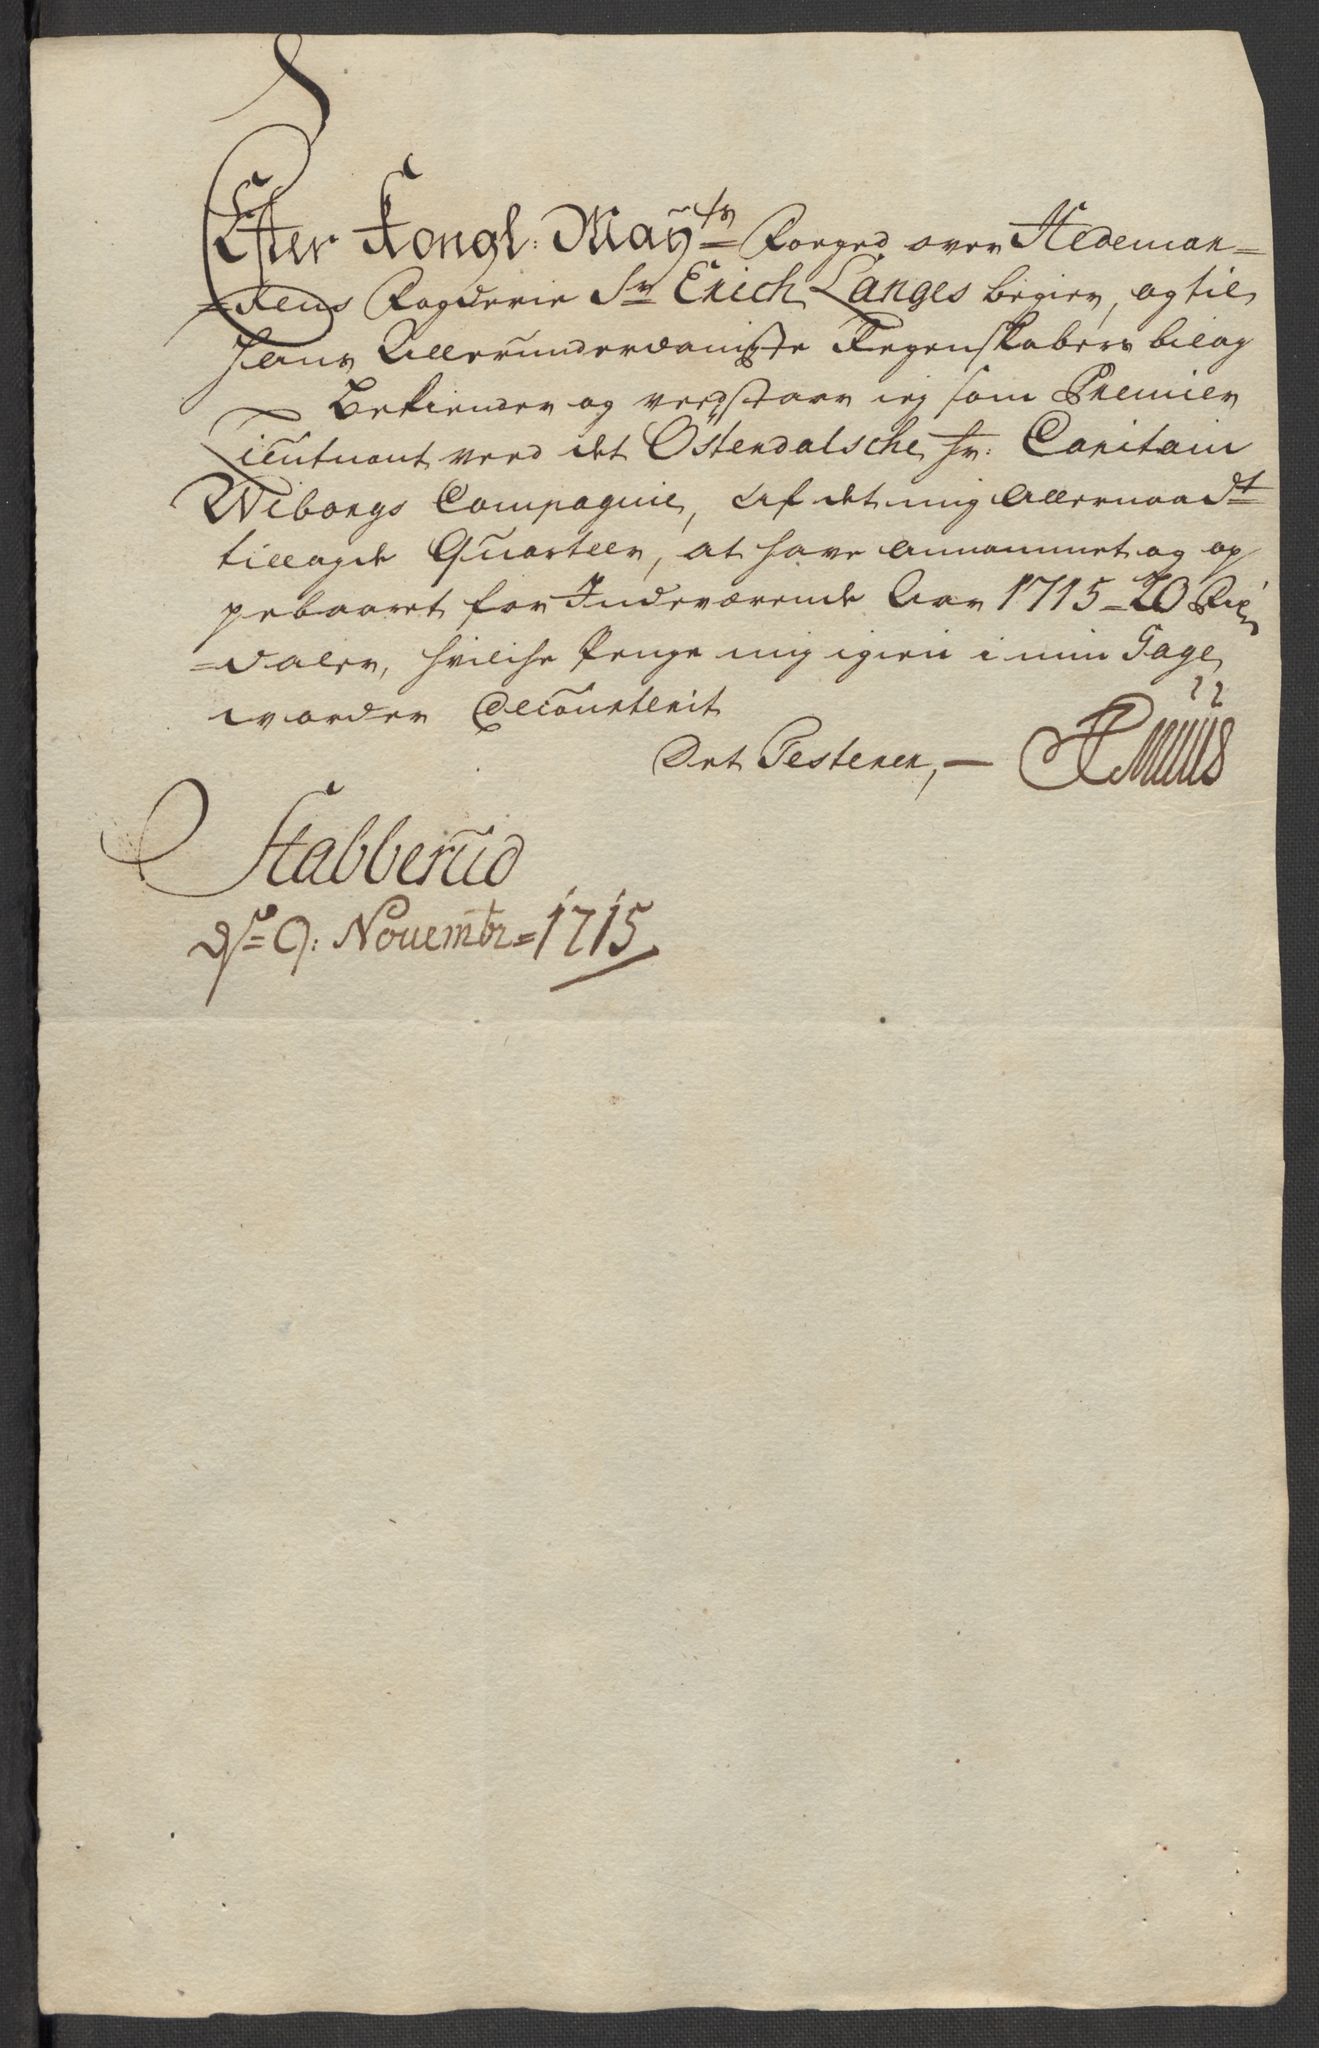 Efter Kongl: May:ts Foeged over Hedemar-
=kens Fogderie Sr Erich Langes begier, og til
hans Allerunderdanigste Regenskabers bilag
Bekiender og veedstaar ieg som Premier
Lieutnant veed det Östendalsche hr: Capitain
Wiborgs Compagnie, Af det mig Allernaadt
tillagde Quarteer, at have annammet og op
pebaaret for Indeværende Aar 1715 - 20 Rix
=daler, hvilche Penge mig igien i min Gage
vorder decourterit
Det Testerer, —
Stabberud
ds= 9: Novembr= 1715